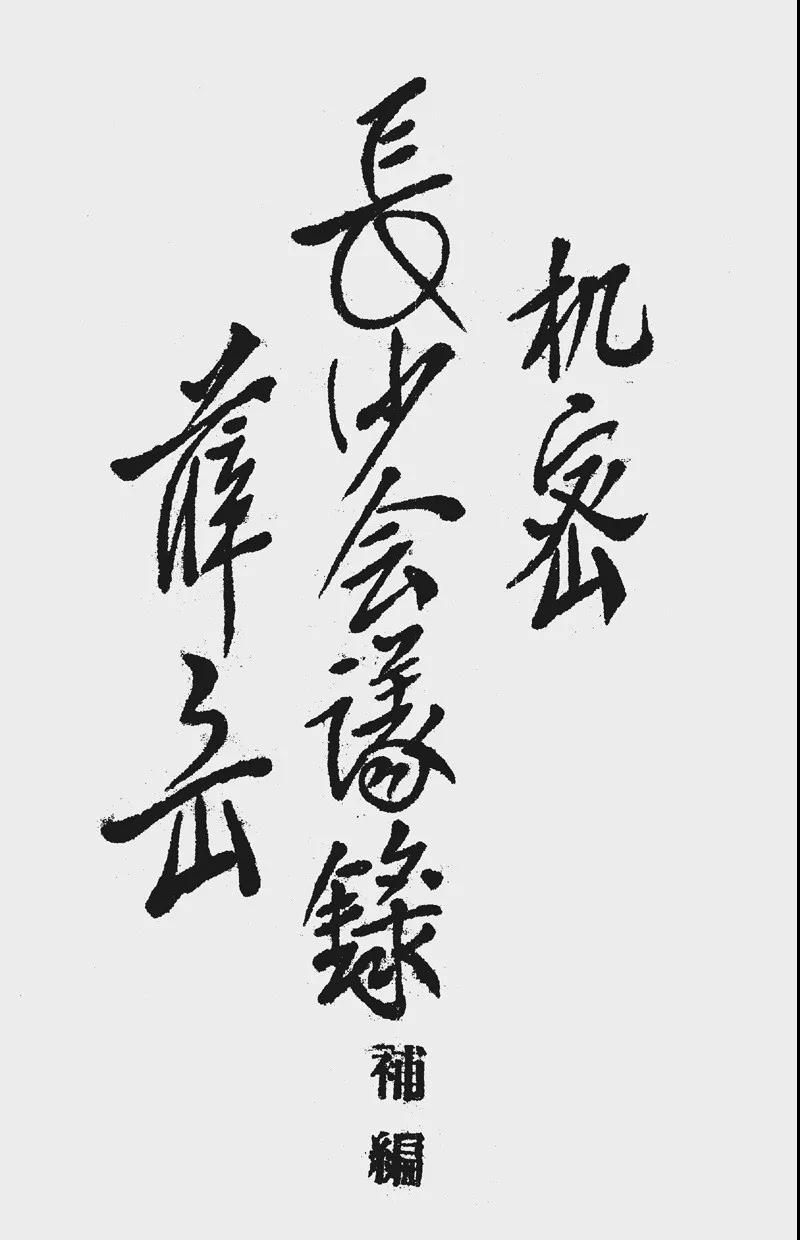 机密
長沙会議錄補編
薛岳